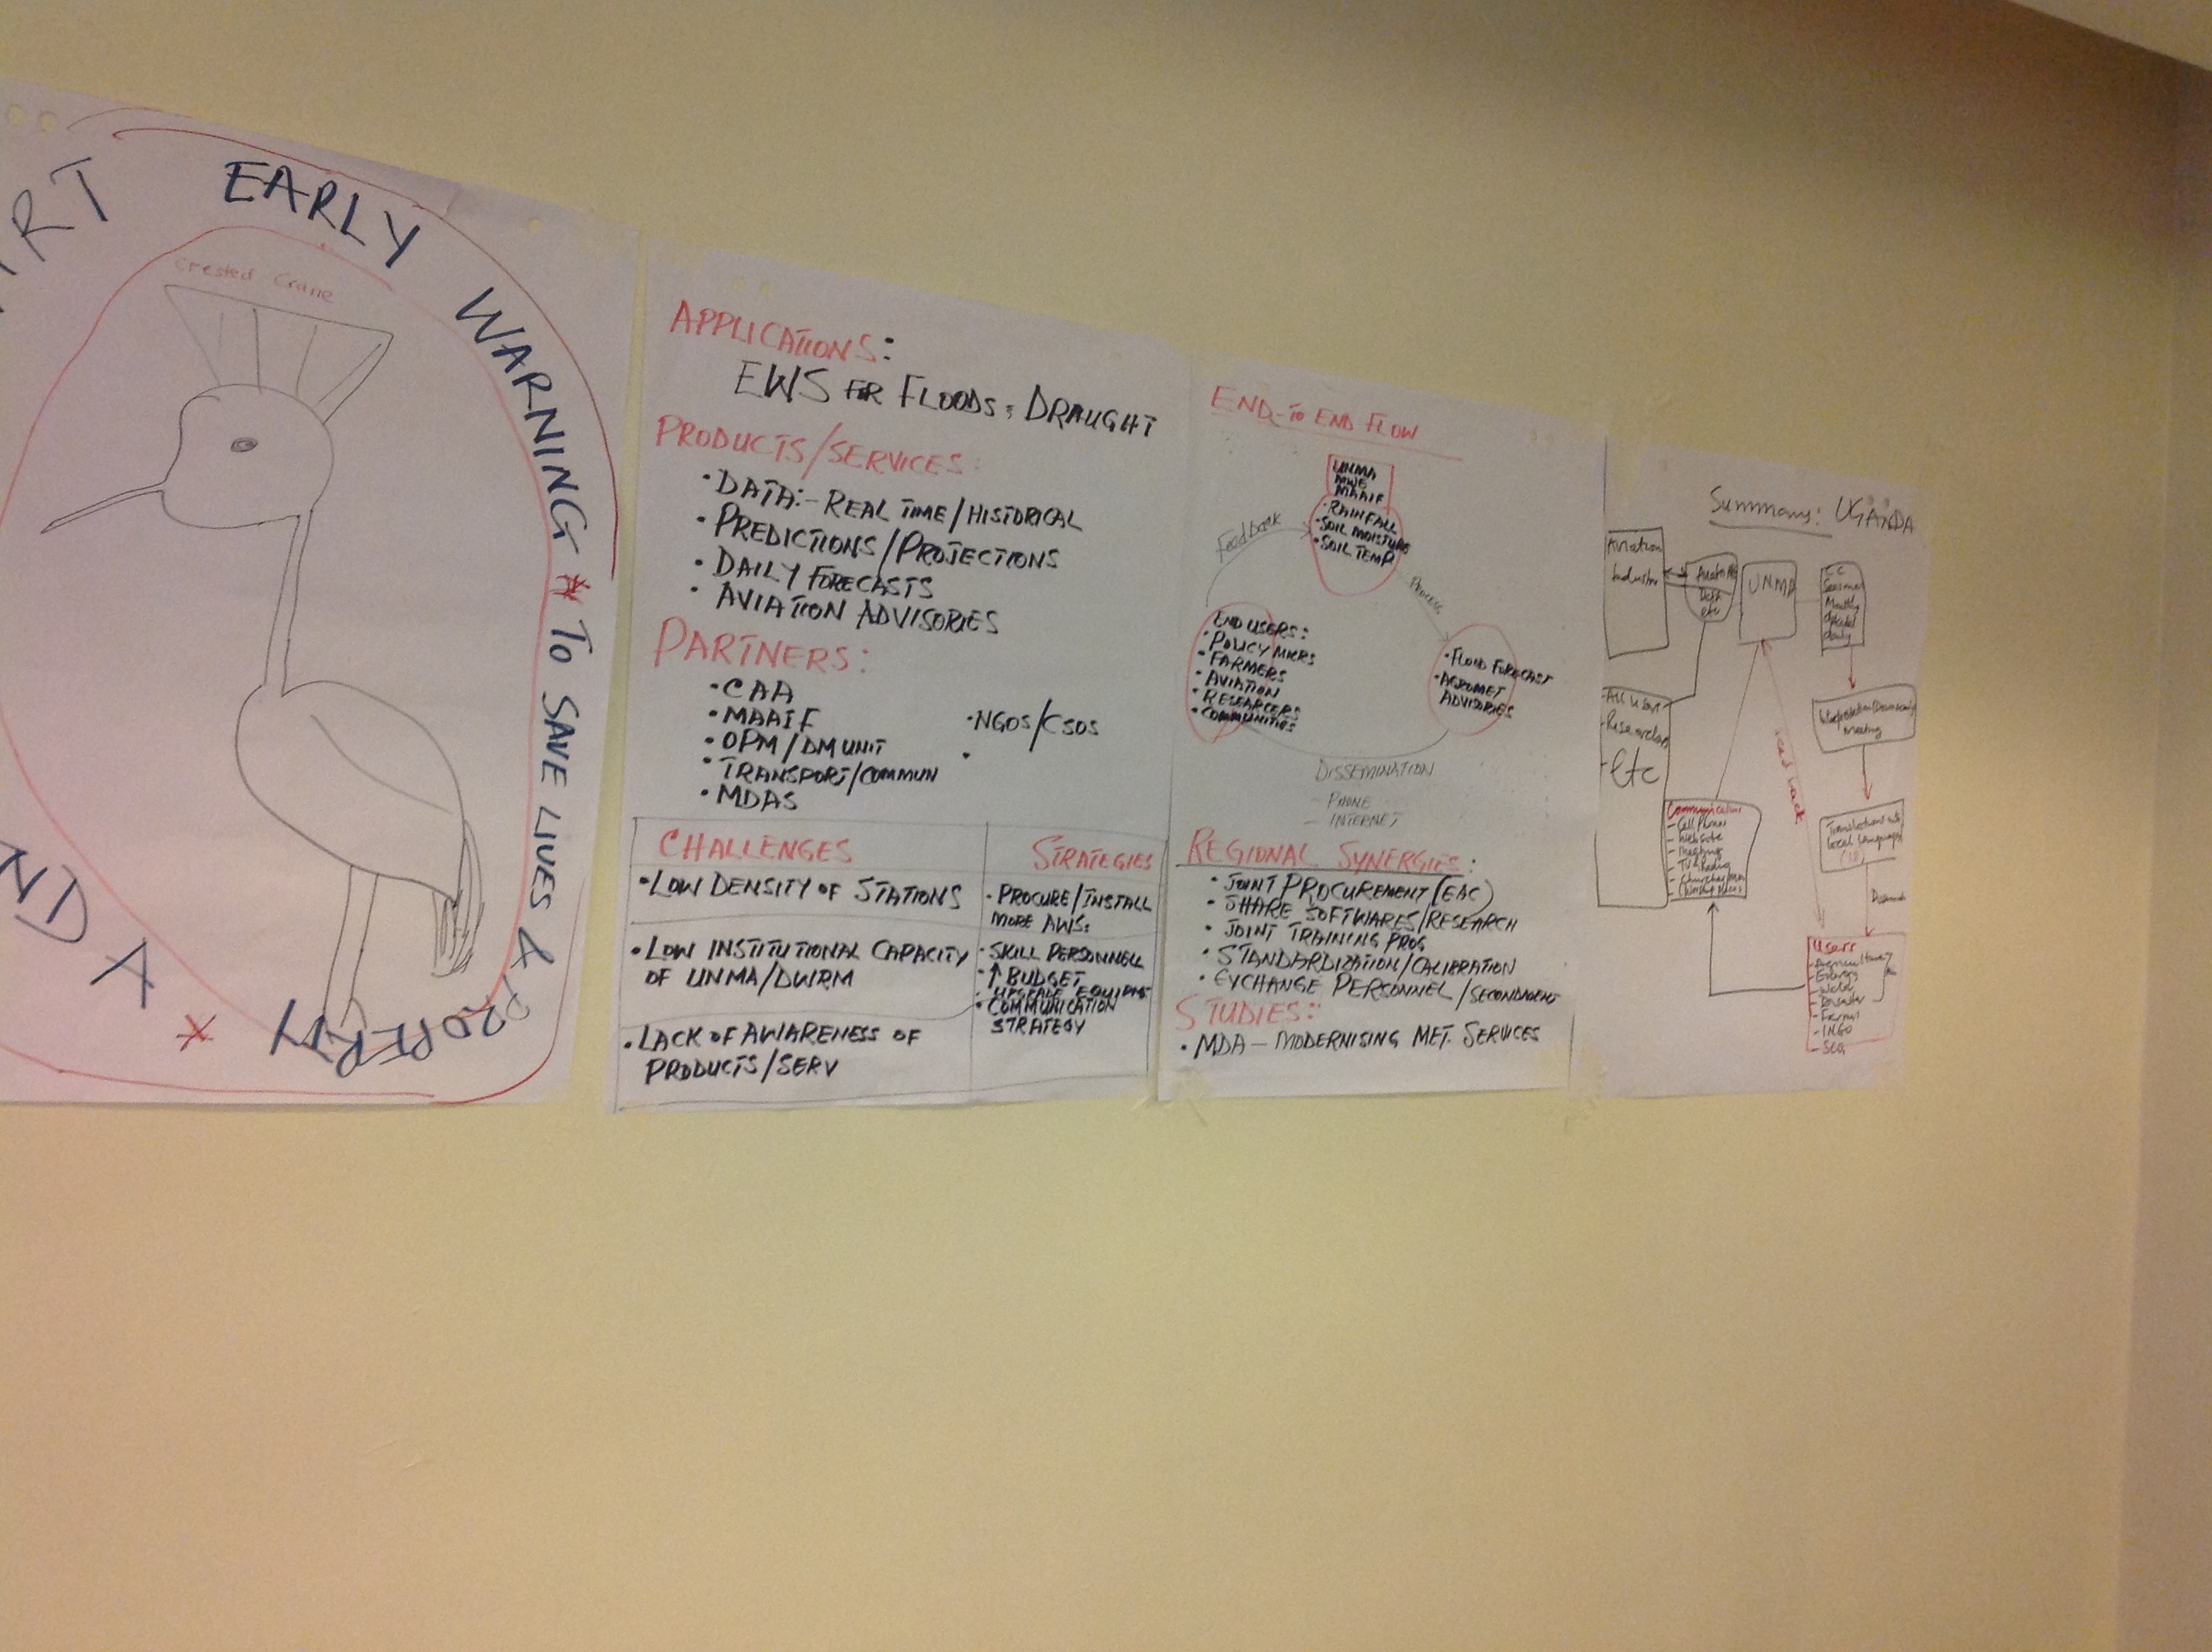 EARLY
WARNING * TO SAVE LIVES &
PROPERTY
*
Crested Crane
APPLICATIONS:
EWS FOR FLOODS & DRAUGHT
PRODUCTS/SERVICES:
• DATA:- REAL TIME/HISTORICAL
• PREDICTIONS/PROJECTIONS
• DAILY FORECASTS
• AVIATION ADVISORIES
PARTNERS:
• CAA
• MAAIF
• OPM/DM UNIT
• TRANSPORT/COMMUN
• MDAS
• NGOS/CSOS
•
CHALLENGES
• LOW DENSITY OF STATIONS
• LOW INSTITUTIONAL CAPACITY
OF UNMA/DWRM
• LACK OF AWARENESS OF
PRODUCTS/SERV
STRATEGIES
• PROCURE/INSTALL
MORE AWS:
• SKILL PERSONNELL
• ↑ BUDGET
• UPGRADE EQUIPMT
• COMMUNICATION
STRATEGY
END-TO END FLOW
UNMA
MAAIF
• RAINFALL
• SOIL MOISTURE
• SOIL TEMP
Feedback
Process
• FLOOD FORECAST
• AGROMET
ADVISORIES
END USERS:
• POLICY MKRS
• FARMERS
• AVIATION
• RESEARCERS
• COMMUNITIES
DISSEMINATION
- PHONE
- INTERNET
REGIONAL SYNERGIES:
• JOINT PROCUREMENT (EAC)
• SHARE SOFTWARES/RESEARCH
• JOINT TRAINING PROG
• STANDARDIZATION/CALIBRATION
• EXCHANGE PERSONNEL/SECONDMENT
STUDIES:
• MDA - MODERNISING MET. SERVICES
Summary: UGANDA
Aviation
Data
etc
UNMA
Monthly
daily
- All users
- Researchers
- Etc
meeting
Translation into
local languages
feed back
Communication
- Cell Phones
- Website
- Meetings
- TV & Radio
Users
- Agriculture
- Energy
- Water
- Disaster
- INGO